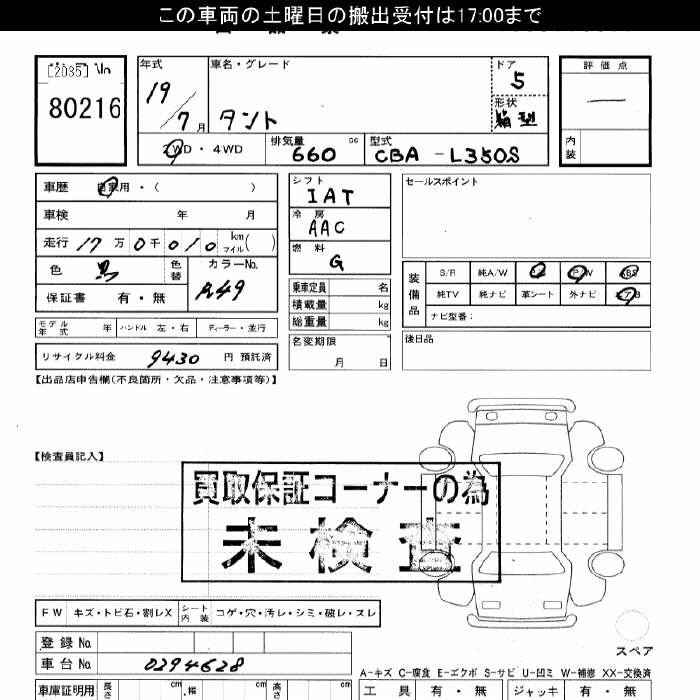 この車両の土曜日の搬出受付は17:00まで
[2035] No
80216
年式
19/7月
車名・グレード
タント
ドア
5
形状
箱型
評価点
—
内装
2WD・4WD
排気量
660 cc
型式
CBA-L350S
車歴 自家用・( )
車検 年 月
走行 17万0千010 km マイル( )
色 黒
色替
カラーNo.
A49
保証書 有・無
シフト
IAT
冷房
AAC
燃料
G
乗車定員 名
積載量 kg
総重量 kg
名変期限
月 日
セールスポイント
装備品
S/R 純A/W P/S P/W ABS
純TV 純ナビ 革シート 外ナビ エアB
ナビ型番:
後日品
モデル年式 年 ハンドル 左・右 ディーラー・並行
リサイクル料金 9430 円 預託済
【出品店申告欄(不良箇所・欠品・注意事項等)】
【検査員記入】
買取保証コーナーの為
未検査
FW キズ・トビ石・割レX シート内装 コゲ・穴・汚レ・シミ・破レ・スレ
登録No.
車台No. 0294628
スペア
A-キズ C-腐食 E-エクボ S-サビ U-凹ミ W-補修 XX-交換済
車庫証明用 長さ cm 幅 cm 高さ cm
工具 有・無 ジャッキ 有・無